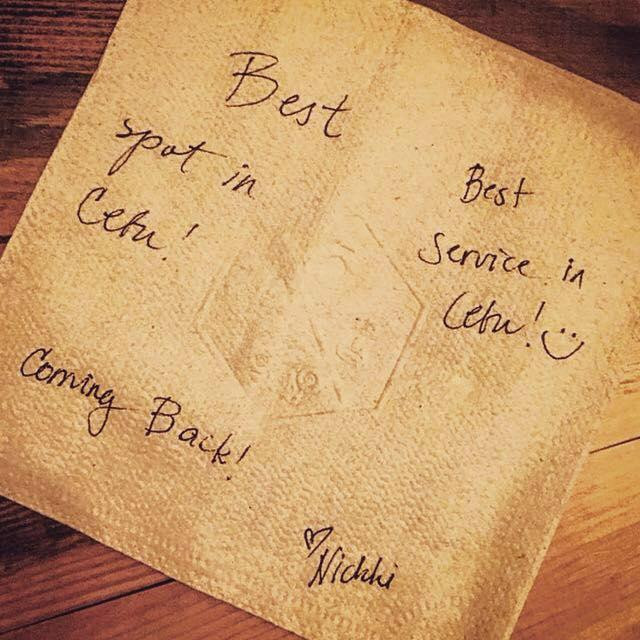 Best
spot in
Cebu!
Best
Service in
Cebu! :)
Coming Back!
♡ Nickki